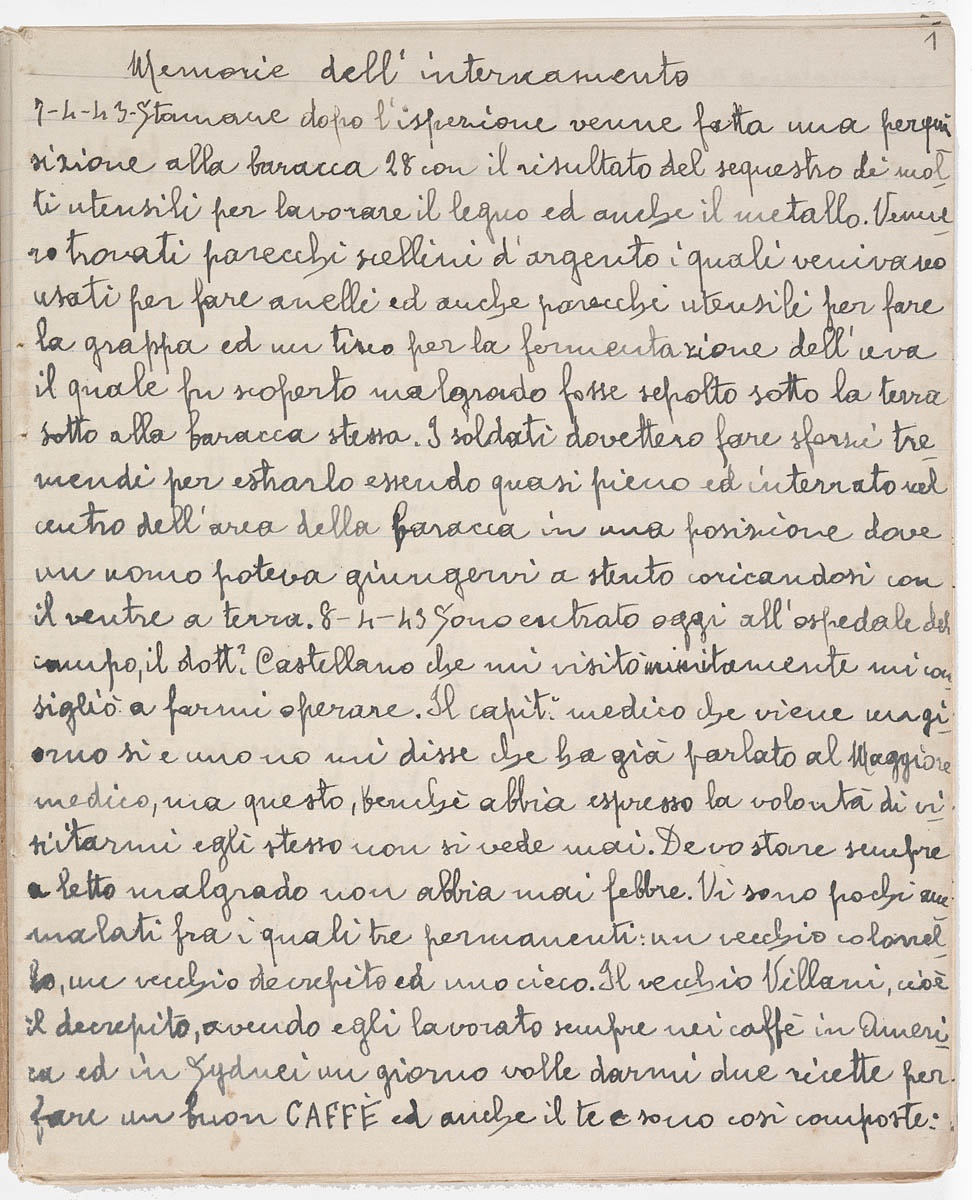 1
Memorie dell'internamento
7-4-43-Stamane dopo l'ispezione venne fatta una perqui
sizione alla baracca 28 con il risultato del sequestro di mol-
ti utensili per lavorare il legno ed anche il metallo. Venne-
ro trovati parecchi scellini d'argento i quali venivano
usati per fare anelli ed anche parecchi utensili per fare
la grappa ed un tino per la fermentazione dell'uva
il quale fu scoperto malgrado fosse sepolto sotto la terra
sotto alla baracca stessa. I soldati dovettero fare sforzi tre-
mendi per estrarlo essendo quasi pieno ed interrato nel
centro dell'area della baracca in una posizione dove
un uomo poteva giungervi a stento coricandosi con
il ventre a terra. 8-4-43 Sono entrato oggi all'ospedale del
campo, il dott. Castellano che mi visitò minitamente mi con-
sigliò a farmi operare. Il capit. medico che viene un gi-
orno si e uno no mi disse che ha già parlato al Maggiore
medico, ma questo, benchè abbia espresso la volontà di vi-
sitarmi egli stesso non si vede mai. Devo stare sempre
a letto malgrado non abbia mai febbre. Vi sono pochi am-
malati fra i quali tre permanenti: un vecchio colonel-
lo, un vecchio decrepito ed uno cieco. Il vecchio Villani, cioè
il decrepito, avendo egli lavorato sempre nei caffè in Ameri-
ca ed in Sydnei un giorno volle darmi due ricette per
fare un buon CAFFÈ ed anche il te e sono così composte: